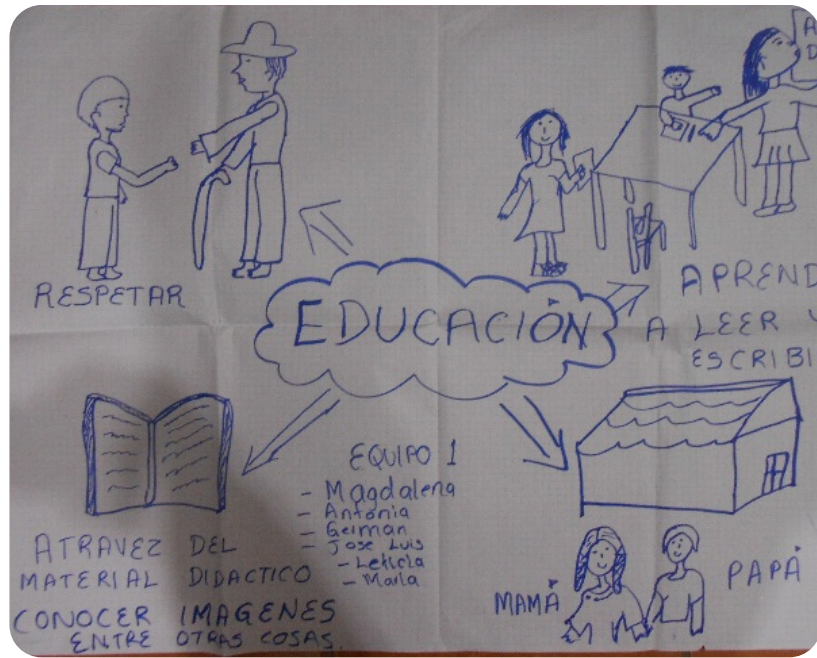 RESPETAR
EDUCACIÓN
APREND
A LEER Y
ESCRIBI
EQUIPO 1
- Magdalena
- Antonia
- German
- Jose Luis
- Leticia
- María
ATRAVEZ DEL
MATERIAL DIDACTICO
CONOCER IMAGENES
ENTRE OTRAS COSAS.
MAMÁ
PAPÁ